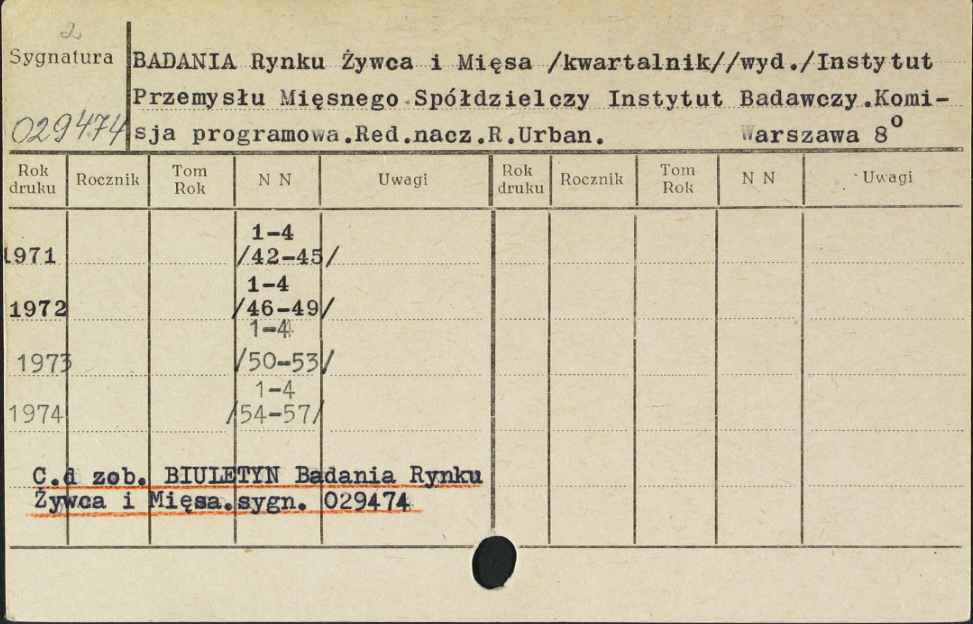 2
Sygnatura
BADANIA Rynku Żywca i Mięsa /kwartalnik//wyd./Instytut
Przemysłu Mięsnego.Spółdzielczy Instytut Badawczy.Komi-
029474
sja programowa.Red.nacz.R.Urban. Warszawa 8°
Rok druku Rocznik Tom Rok N N Uwagi Rok druku Rocznik Tom Rok N N Uwagi
1-4
1971 /42-45/
1-4
1972 /46-49/
1-4
1973 /50-53/
1-4
1974 /54-57/
C.d zob. BIULETYN Badania Rynku
Żywca i Mięsa.sygn. 029474